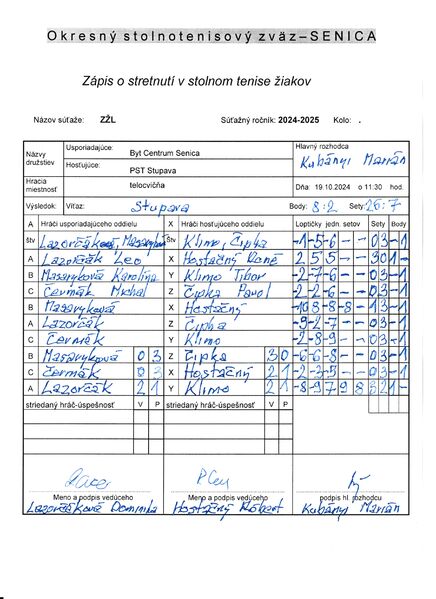 Okresný stolnotenisový zväz–SENICA
Zápis o stretnutí v stolnom tenise žiakov
Názov súťaže: ZŽL Súťažný ročník: 2024-2025 Kolo: .
Názvy družstiev Usporiadajúce: Byt Centrum Senica Hlavný rozhodca
Hosťujúce: PST Stupava Kubányi Marián
Hracia miestnosť telocvičňa Dňa: 19.10.2024 o 11:30 hod.
Výsledok: Víťaz: Stupava Body: 8:2 Sety: 26:7
A Hráči usporiadajúceho oddielu X Hráči hosťujúceho oddielu Loptičky jedn. setov Sety Body
štv Lazorčáková, Masaryková štv Klimo, Čipka -1-5-6-- 03 -1
A Lazorčák Leo X Hostačný 2 5 5 -- 30 1-
B Masaryková Karolína Y Klimo Tibor -2-7-6-- 03 -1
C Čermák Michal Z Čipka Pavol -2-2-6-- 03 -1
B Masaryková X Hostačný -1
A Lazorčák Z Čipka -9-2-7-- 03 -1
C Čermák Y Klimo -2-8-9-- 03 -1
B Masaryková 0 3 Z Čipka 3 0 -6-6-8-- 03 -1
C Čermák 0 3 X Hostačný 2 1 -2-3-5-- 03 -1
A Lazorčák 2 1 Y Klimo 2 1 -8 -9 7 9 8 32 1-
striedaný hráč-úspešnosť V P striedaný hráč-úspešnosť V P
Meno a podpis vedúceho Meno a podpis vedúceho podpis hl. rozhodcu
Lazorčáková Dominika Hostačný Róbert Kubányi Marián